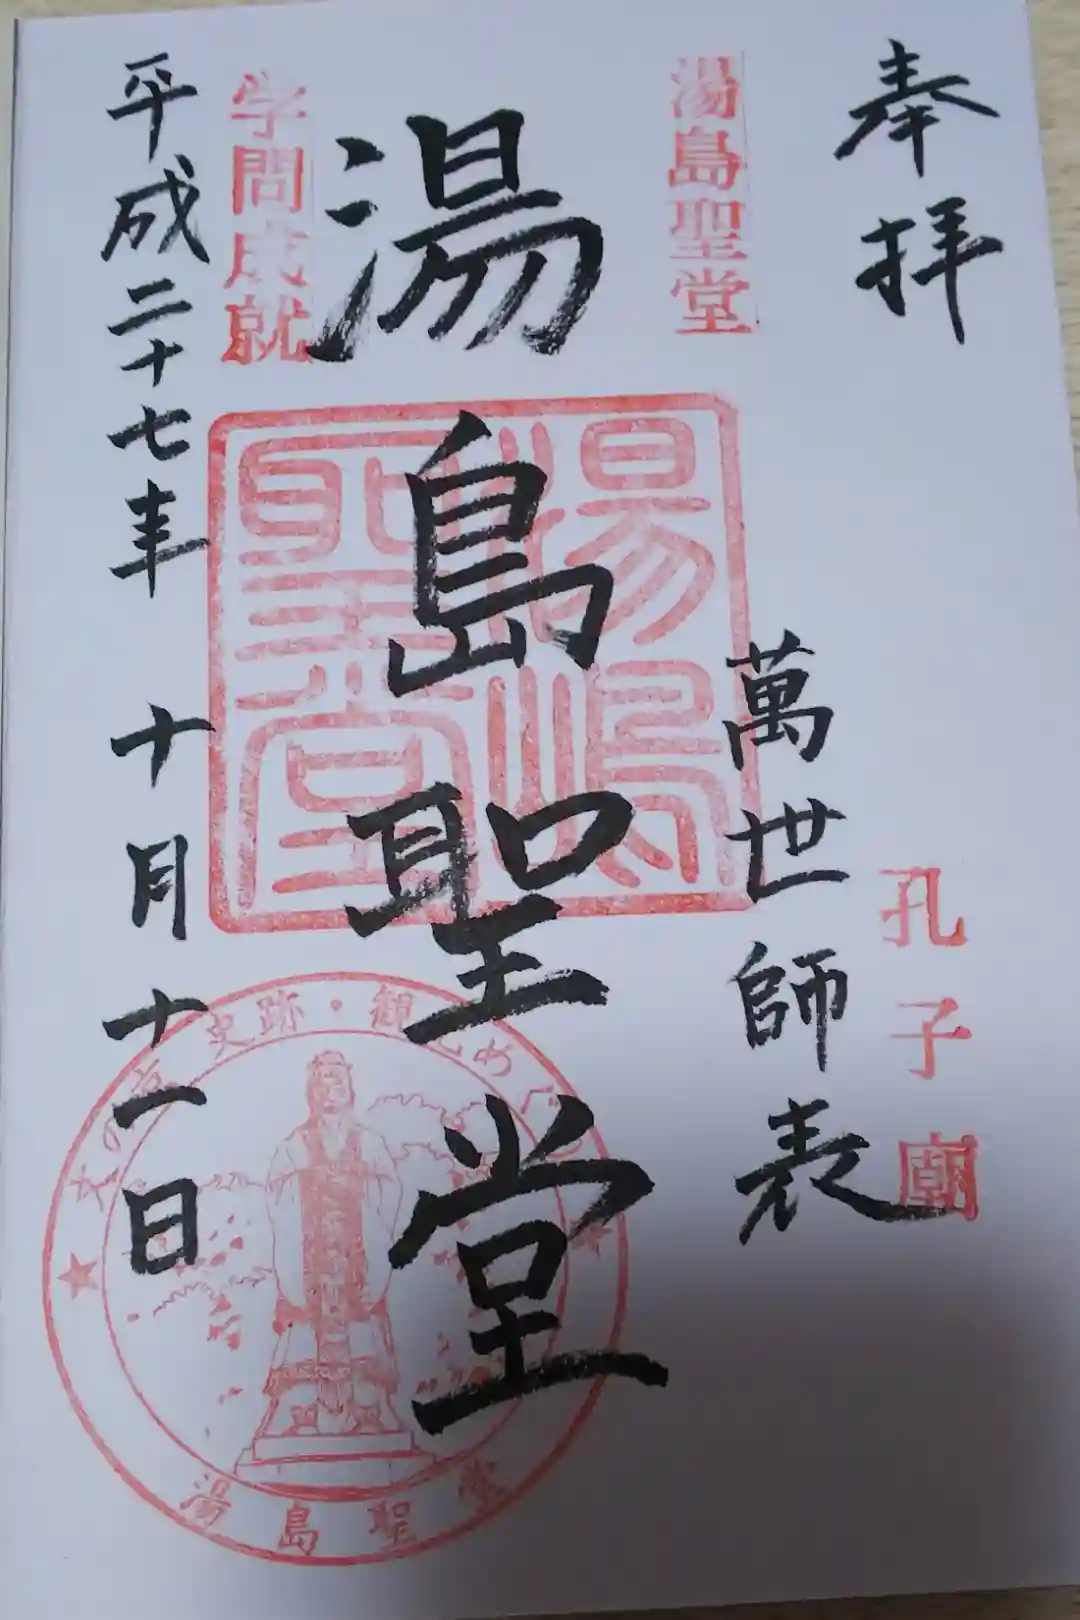 奉拝
湯島聖堂
萬世師表
孔子廟
湯島聖堂
湯嶋聖堂
学問成就
平成二十七年 十月 十一日
史跡・御
めぐ
湯島聖堂